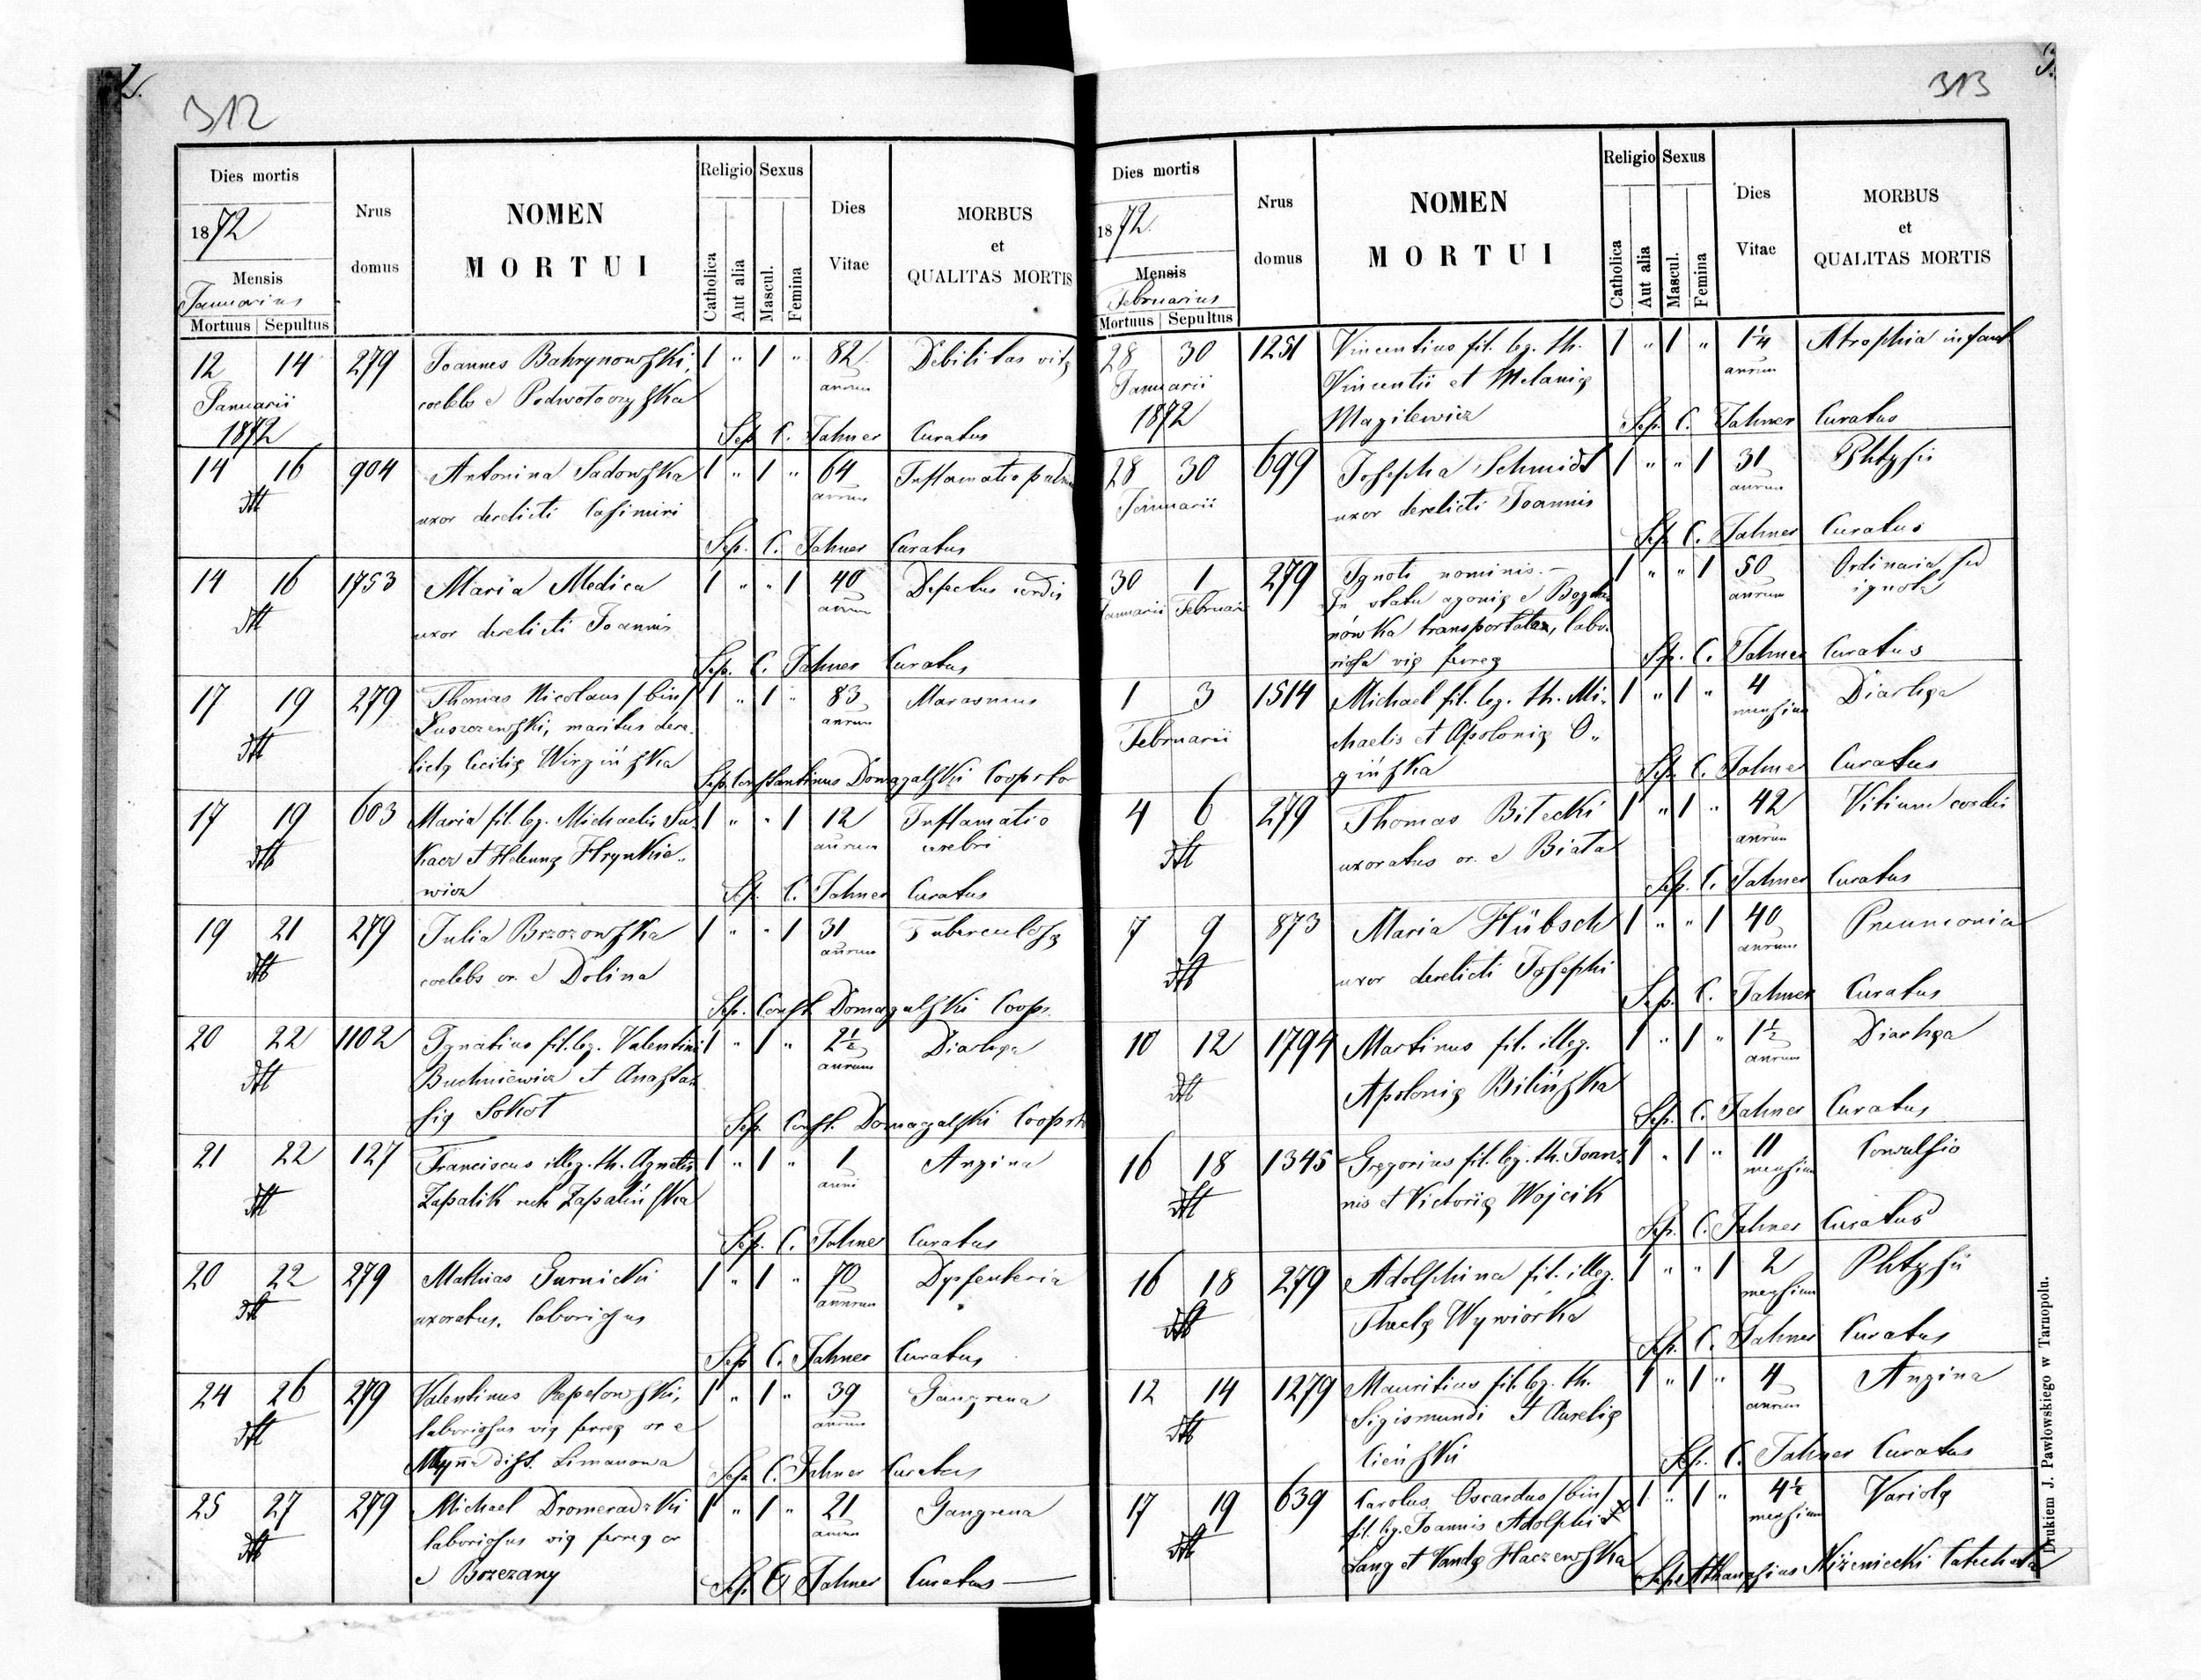 2.
312
Dies mortis
1872
Mensis
Januarius
Mortuus | Sepultus
Nrus
domus
NOMEN
MORTUI
Religio
Catholica
Aut alia
Sexus
Mascul.
Femina
Dies
Vitae
MORBUS
et
QUALITAS MORTIS
12 14 279 Joannes Bahrynowski, 1 " 1 " 82 Debilitas vitę
Januarii coelebs e Podwołoczyska annum
1872 Sep. C. Jahner Curatus
14 16 904 Antonina Sadowska 1 " 1 " 64 Inflamatio pulm
dtt uxor derelicti Casimiri annum
Sep. C. Jahner Curatus
14 16 1753 Maria Medica 1 " " 1 40 Defectus cordis
dtt uxor derelicti Joannis annum
Sep. C. Jahner Curatus
17 19 279 Thomas Nicolaus /bin/ 1 " 1 " 83 Marasmus
dtt Łuszczewski, maritus dere. annum
lictę Cecilię Wirgińska
Sep. Constantinus Domagalski Cooprtor
17 19 603 Maria fil. leg. Michaelis Su. 1 " " 1 12 Inflamatio
dtt kacz et Helennę Hrynkie.. annum cerebri
wicz Sep. C. Jahner Curatus
19 21 279 Julia Brzozowska 1 " " 1 31 Tuberculosę
dtt coelebs or. e Dolina annum
Sep. Const. Domagalski Coopr.
20 22 1102 Ignatius fil. leg. Valentini 1 " 1 " 2½ Diarhęa
dtt Buchniewicz et Anasta annum
się Sokoł Sep. Const. Domagalski Cooprt
21 22 127 Franciscus illeg. th. Agnetis 1 " 1 " 1 Angina
dtt Zapalik recte Zapalińska anni
Sep. C. Jahner Curatus
20 22 279 Mathias Gurnicki 1 " 1 " 70 Dysenteria
dtt uxoratus. laboriosus annum
Sep. C. Jahner Curatus
24 26 279 Valentinus Repelowski, 1 " 1 " 39 Gangrena
dtt laboriosus vię ferreę or e annum
dist. Limanowa
Sep. C. Jahner Curatus
25 27 279 Michael Dromeradzki 1 " 1 " 21 Gangrena
dtt laboriosus vię ferreę or annum
e Brzezany Sep. C. Jahner Curatus
3.
313
Dies mortis
1872.
Mensis
Februarius
Mortuus | Sepultus
Nrus
domus
NOMEN
MORTUI
Religio
Catholica
Aut alia
Sexus
Mascul.
Femina
Dies
Vitae
MORBUS
et
QUALITAS MORTIS
28 30 1251 Vincentius fil. leg. th. 1 " 1 " 1¼ Atrophia infant
Januarii Vincentii et Melanię annum
1872 Magilewicz Sep. C. Jahner Curatus
28 30 699 Josepha Schmidt 1 " " 1 31 Phtysii
Januarii uxor derelicti Joannis annum
Sep. C. Jahner Curatus
30 1 279 Ignoti nominis.- 1 " " 1 50 Ordinaria sed
Januarii Februari In statu agonię e Bogda annum ignota
nówka transportata, labo.
riosa vię ferreę Sep. C. Jahner Curatus
1 3 1514 Michael fil. leg. th. Mi. 1 " 1 " 4 Diarhęa
Februarii chaelis et Apolonię O.. mensium
gińska Sep. C. Jahner Curatus
4 6 279 Thomas Bitecki 1 " 1 " 42 Vitium cordis
dtt uxoratus or. e Biała annum
Sep. C. Jahner Curatus
7 9 873 Maria Hübsch 1 " " 1 40 Pneumonia
dtt uxor derelicti Josephi annum
Sep. C. Jahner Curatus
10 12 1794 Martinus fil. illeg. 1 " 1 " 1½ Diarhęa
dtt Apolonię Bilińska annum
Sep. C. Jahner Curatus
16 18 1345 Gregorius fil. leg. th. Joan. 1 " 1 " 11 Convulsio
dtt nis et Victorię Wojcik mensium
Sep. C. Jahner Curatus
16 18 279 Adolphina fil. illeg. 1 " " 1 2 Phtysii
dtt Theclę Wywiórka mensium
Sep. C. Jahner Curatus
12 14 1279 Mauritius fil. leg. th. 1 " 1 " 4 Angina
dtt Sigismundi et Aurelię annum
Cieński Sep. C. Jahner Curatus
17 19 639 Carolus Oscardus /bin/ 1 " 1 " 4½ Variolę
dtt fil. leg. Joannis Adolphi mensium
Lang et Vandę Haczewska
Sep. Athanasius Niżeniecki Catecheta
Drukiem J. Pawłowskiego w Tarnopolu.